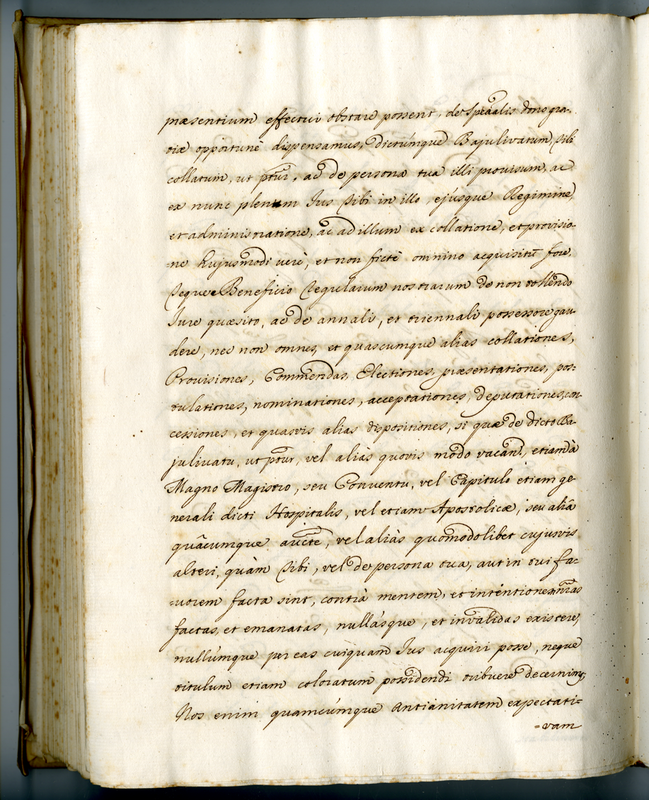 præsentium effectui obstare possent, de speãalis dono gra-
tiæ opportunè dispensamus, dictumque Bajulivatum sibi
collatum, ut ptur, ac de persona tua illi provisum, ac
ex nunc plenum Jus sibi in illo, ejusque Regimine,
et administratione, ac ad illum ex collatione, et provisio-
ne hujusmodi verè, et non fictè omnino acquisitũ fore
teque Beneficio Regularum nostrarum de non tollendo
Jure quæsito, ac de annali, et triennali possessore gau-
dere, nec non omnes, et quascumque alias collationes,
Provisiones, Commendas, Electiones, præsentationes, pos-
tulationes, nominationes, acceptationes, deputationes, con-
cessiones, et quasvis alias dispositiones, si quæ de dicto Ba-
julivatu, ut ptur, vel aliàs quovis modo vacañ, etiam à
Magno Magistro, seu Conventu, vel Capitulo etiam ge-
nerali dicti Hospitalis, vel etiam Apostolica, seu aliâ
quâcumque aucte, vel aliàs quomodolibet cujusvis
alteri, quàm tibi, vel de persona tua, aut in tui fa-
vorem facta sint, contrà mentem, et intentionem nr̃as
factas, et emanatas, nullásque, et invalidas existere,
nullúmque per eas cuiquam Jus acquiri posse, neque
titulum etiam coloratum possidendi tribuere decernimus,
Nos enim quamcúmque Antianitatem expectati-
-vam